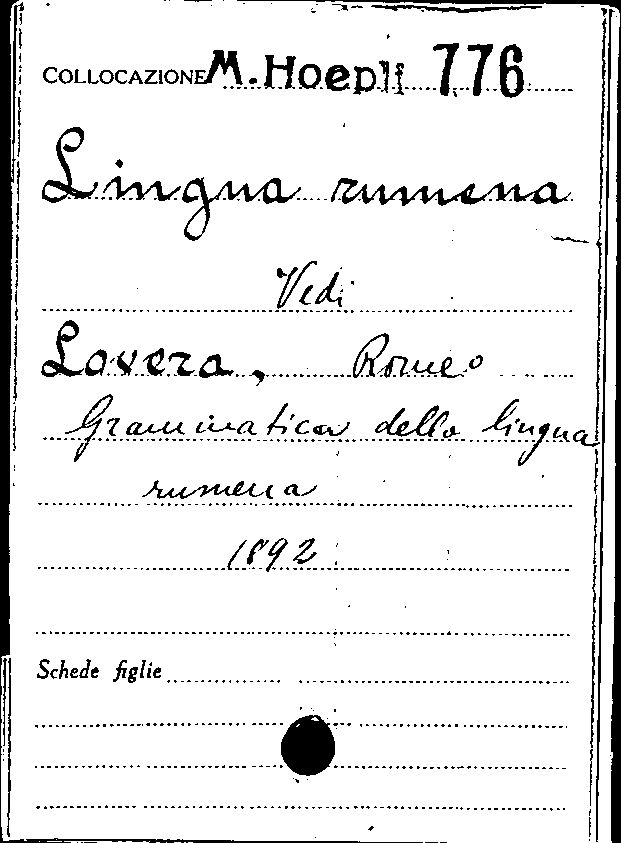 COLLOCAZIONE M. Hoepli 776
Lingua rumena
Vedi
Lovera, Romeo
Grammatica della lingua
rumena
1892
Schede figlie